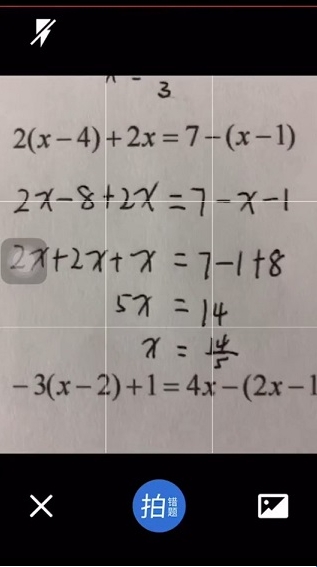 3
2(x−4)+2x=7−(x−1)
2x-8+2x=7-x-1
2x+2x+x=7-1+8
5x=14
x=14/5
−3(x−2)+1=4x−(2x−1
拍错题